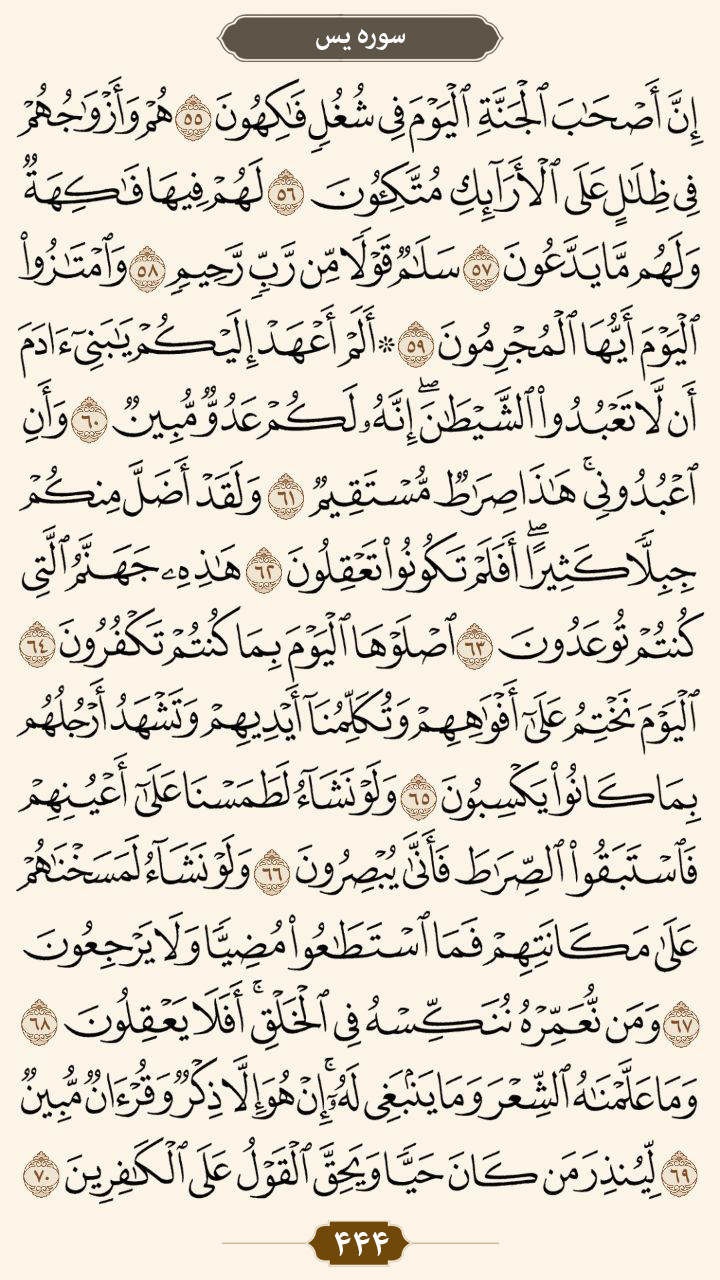 سوره یس
إِنَّ أَصْحَٰبَ ٱلْجَنَّةِ ٱلْيَوْمَ فِى شُغُلٍ فَٰكِهُونَ ٥٥ هُمْ وَأَزْوَٰجُهُمْ
فِى ظِلَٰلٍ عَلَى ٱلْأَرَآئِكِ مُتَّكِـُٔونَ ٥٦ لَهُمْ فِيهَا فَٰكِهَةٌ
وَلَهُم مَّا يَدَّعُونَ ٥٧ سَلَٰمٌ قَوْلًا مِّن رَّبٍّ رَّحِيمٍ ٥٨ وَٱمْتَٰزُوا۟
ٱلْيَوْمَ أَيُّهَا ٱلْمُجْرِمُونَ ٥٩ ۞ أَلَمْ أَعْهَدْ إِلَيْكُمْ يَٰبَنِىٓ ءَادَمَ
أَن لَّا تَعْبُدُوا۟ ٱلشَّيْطَٰنَ ۖ إِنَّهُۥ لَكُمْ عَدُوٌّ مُّبِينٌ ٦٠ وَأَنِ
ٱعْبُدُونِى ۚ هَٰذَا صِرَٰطٌ مُّسْتَقِيمٌ ٦١ وَلَقَدْ أَضَلَّ مِنكُمْ
جِبِلًّا كَثِيرًا ۖ أَفَلَمْ تَكُونُوا۟ تَعْقِلُونَ ٦٢ هَٰذِهِۦ جَهَنَّمُ ٱلَّتِى
كُنتُمْ تُوعَدُونَ ٦٣ ٱصْلَوْهَا ٱلْيَوْمَ بِمَا كُنتُمْ تَكْفُرُونَ ٦٤
ٱلْيَوْمَ نَخْتِمُ عَلَىٰٓ أَفْوَٰهِهِمْ وَتُكَلِّمُنَآ أَيْدِيهِمْ وَتَشْهَدُ أَرْجُلُهُم
بِمَا كَانُوا۟ يَكْسِبُونَ ٦٥ وَلَوْ نَشَآءُ لَطَمَسْنَا عَلَىٰٓ أَعْيُنِهِمْ
فَٱسْتَبَقُوا۟ ٱلصِّرَٰطَ فَأَنَّىٰ يُبْصِرُونَ ٦٦ وَلَوْ نَشَآءُ لَمَسَخْنَٰهُمْ
عَلَىٰ مَكَانَتِهِمْ فَمَا ٱسْتَطَٰعُوا۟ مُضِيًّا وَلَا يَرْجِعُونَ
٦٧ وَمَن نُّعَمِّرْهُ نُنَكِّسْهُ فِى ٱلْخَلْقِ ۚ أَفَلَا يَعْقِلُونَ ٦٨
وَمَا عَلَّمْنَٰهُ ٱلشِّعْرَ وَمَا يَنۢبَغِى لَهُۥٓ ۚ إِنْ هُوَ إِلَّا ذِكْرٌ وَقُرْءَانٌ مُّبِينٌ
٦٩ لِّيُنذِرَ مَن كَانَ حَيًّا وَيَحِقَّ ٱلْقَوْلُ عَلَى ٱلْكَٰفِرِينَ ٧٠
۴۴۴